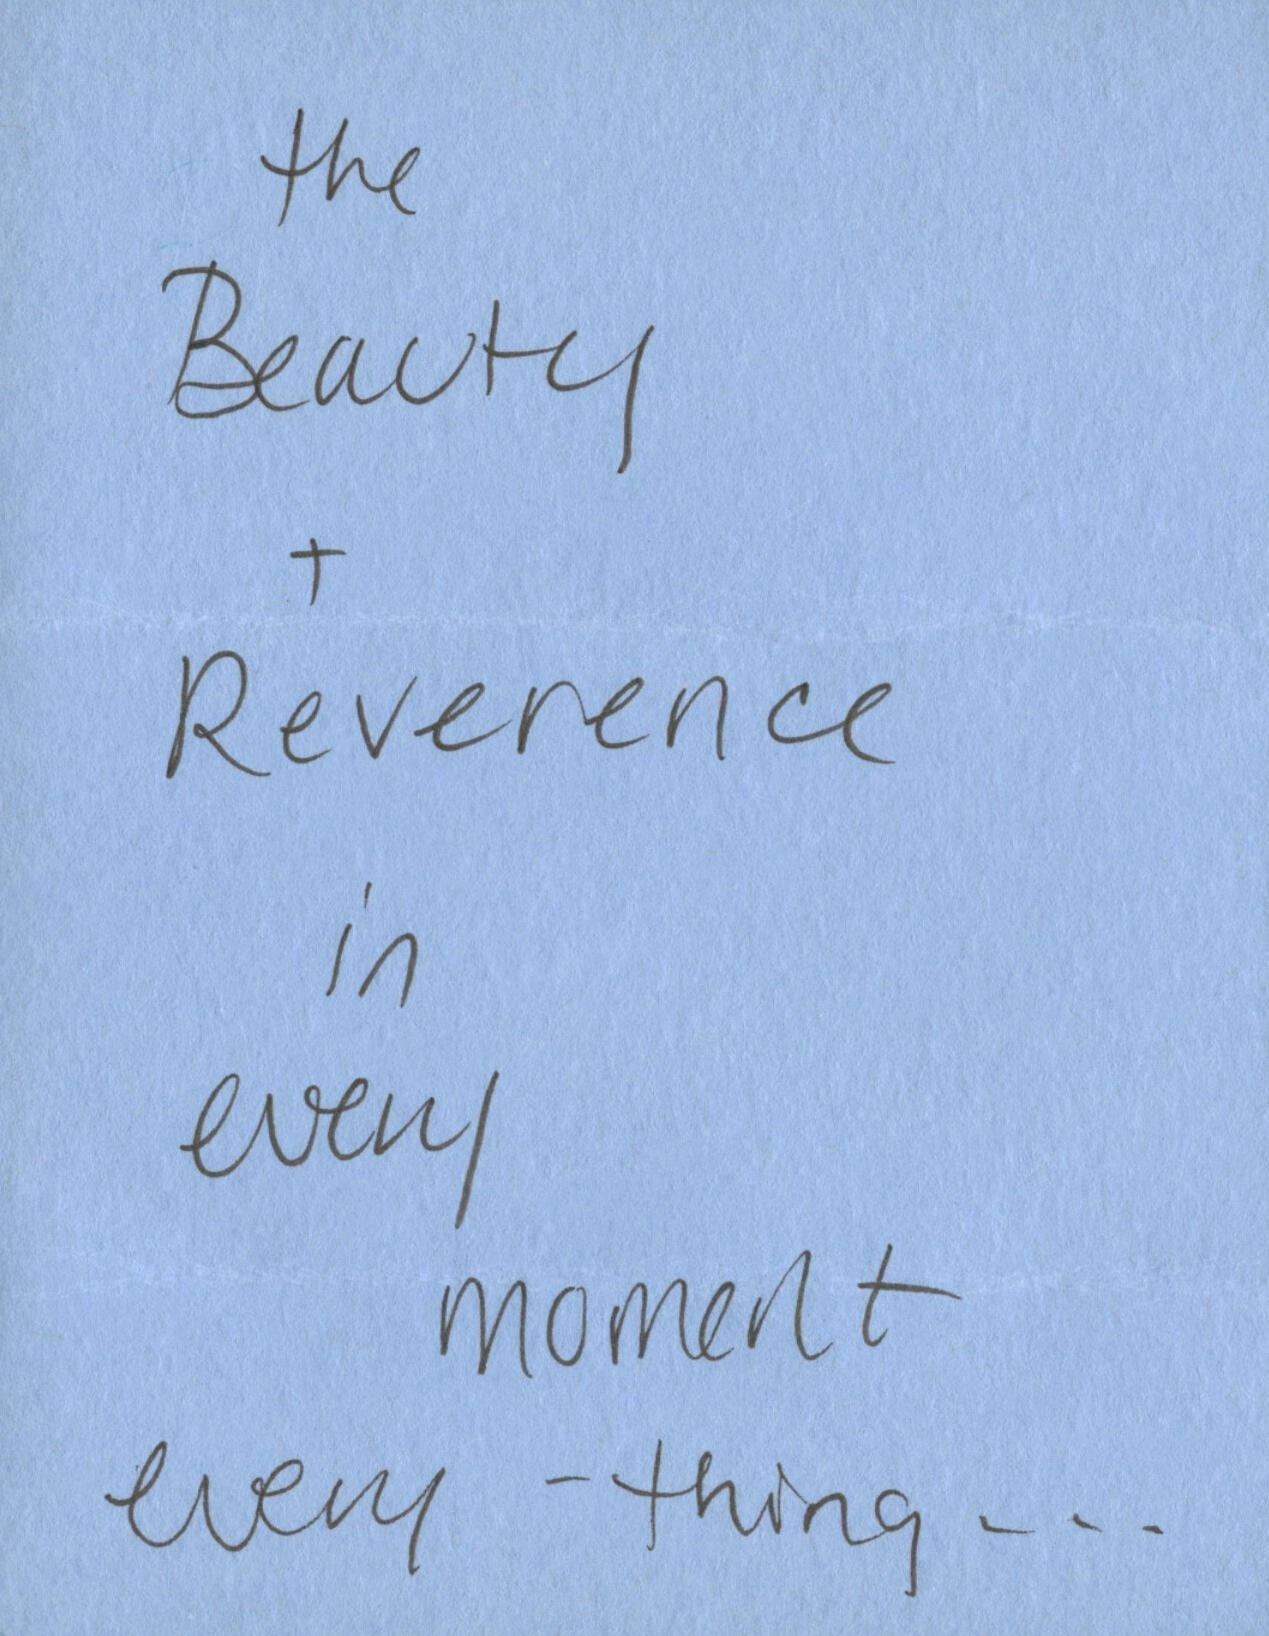 the
Beauty
+
Reverence
in
every
moment
every - thing ...